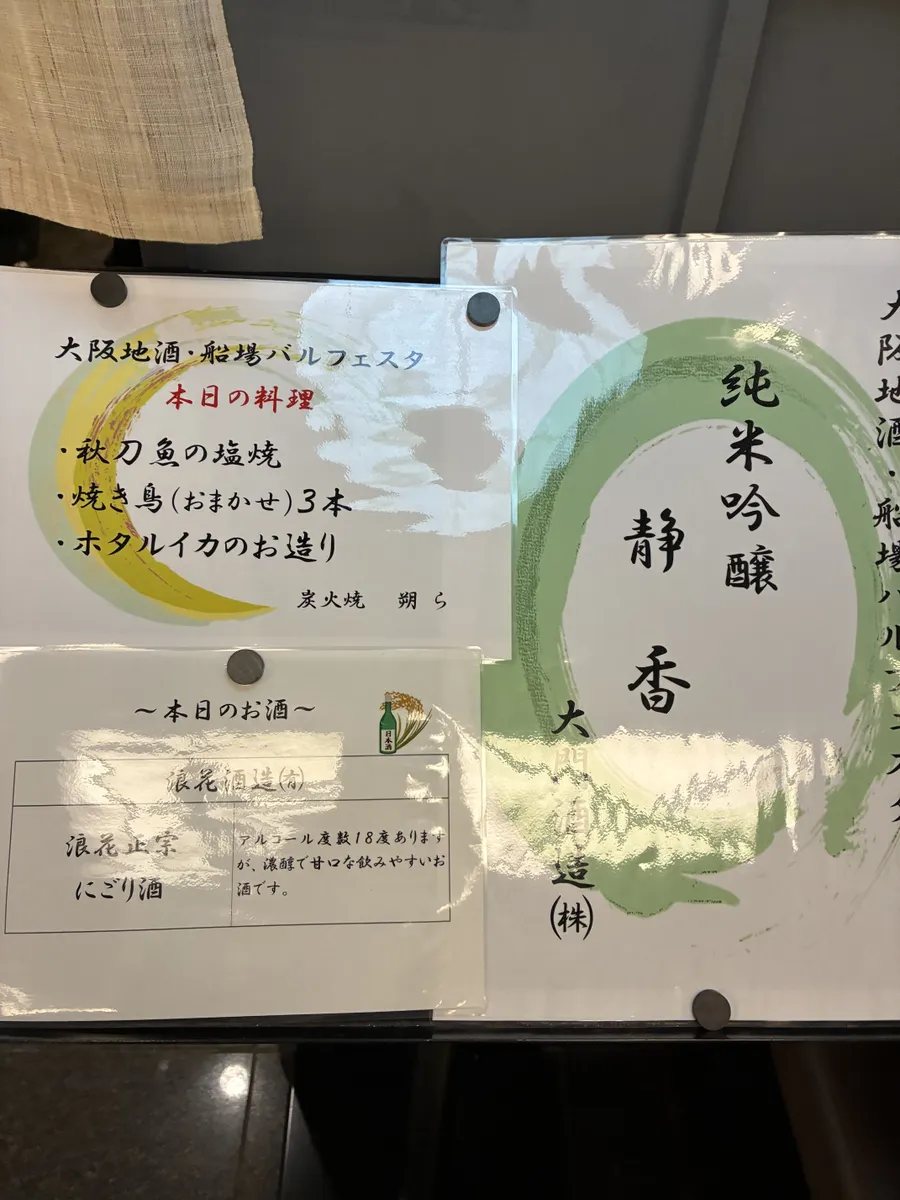 大阪地酒・船場バルフェスタ
本日の料理
・秋刀魚の塩焼
・焼き鳥(おまかせ)3本
・ホタルイカのお造り
炭火焼 朔ら
～本日のお酒～
日本酒
浪花酒造㈲
浪花正宗
にごり酒
アルコール度数18度あります
が、濃醇で甘口な飲みやすいお
酒です。
大阪地酒・船場バルフェスタ
純米吟醸
静香
大門酒造㈱